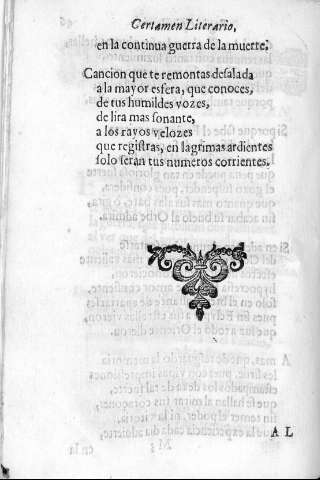 Certamen Literario,
en la continua guerra de la muerte.
Cancion que te remontas desalada
a la mayor esfera, que conoces,
de tus humildes vozes,
de lira mas sonante,
a los rayos velozes
que registras, en lagrimas ardientes
solo seràn tus numeros corrientes.
A L